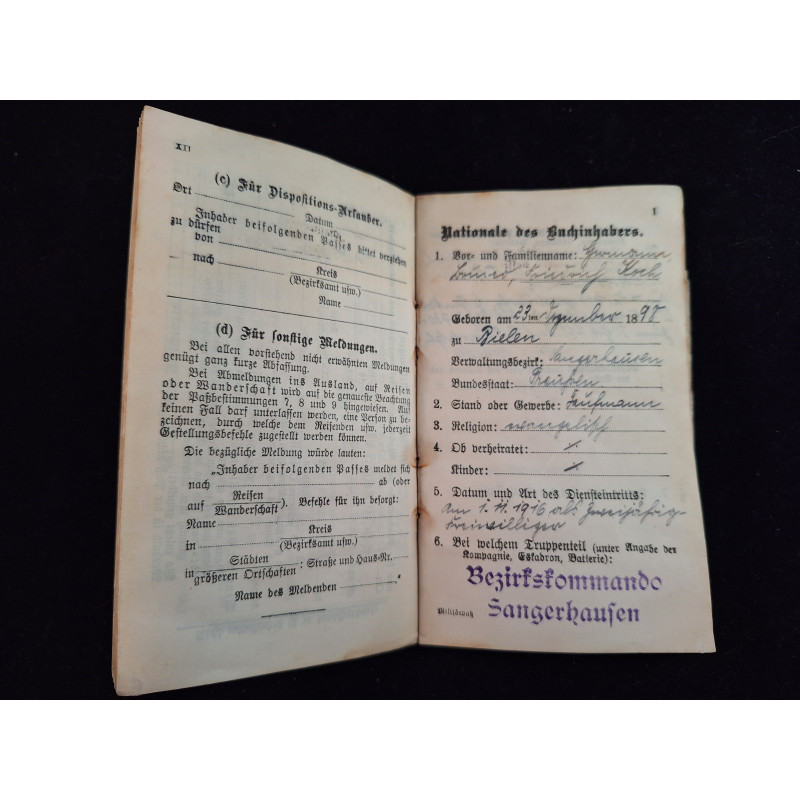 XII
(c) Für Dispositions-Urlauber.
Ort Datum
Inhaber beifolgenden Passes bittet verziehen
zu dürfen
von
nach Kreis
(Bezirksamt usw.)
Name
(d) Für sonstige Meldungen.
Bei allen vorstehend nicht erwähnten Meldungen
genügt ganz kurze Abfassung.
Bei Abmeldungen ins Ausland, auf Reisen
oder Wanderschaft wird auf die genaueste Beachtung
der Paßbestimmungen 7, 8 und 9 hingewiesen. Auf
keinen Fall darf unterlassen werden, eine Person zu be-
zeichnen, durch welche dem Reisenden usw. jederzeit
Gestellungsbefehle zugestellt werden können.
Die bezügliche Meldung würde lauten:
„Inhaber beifolgenden Passes meldet sich
nach ab (oder
auf Reisen
Wanderschaft). Befehle für ihn besorgt:
Name
Kreis
in (Bezirksamt usw.)
in Städten
größeren Ortschaften: Straße und Haus-Nr.
Name des Meldenden
1
Nationale des Buchinhabers.
1. Vor- und Familienname: Hermann,
Koch
Geboren am 23ten Dezember 1898
zu Bielen
Verwaltungsbezirk: Sangerhausen
Bundesstaat: Preußen
2. Stand oder Gewerbe: Kaufmann
3. Religion: evangelisch
4. Ob verheiratet:
Kinder:
5. Datum und Art des Diensteintritts:
Am 1. 11. 1916 als Zweijährig-
Freiwilliger
6. Bei welchem Truppenteil (unter Angabe der
Kompagnie, Eskadron, Batterie):
Bezirkskommando
Sangerhausen
Militärpaß